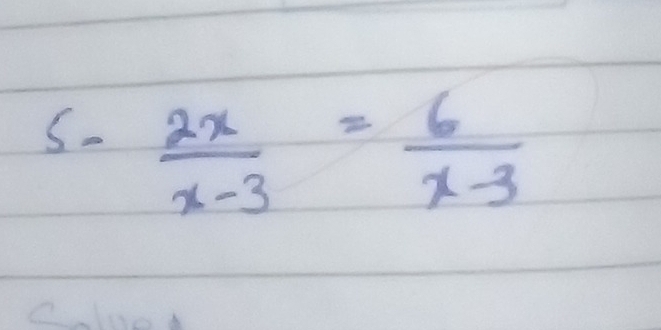 5- 2x/x-3 = 6/x-3